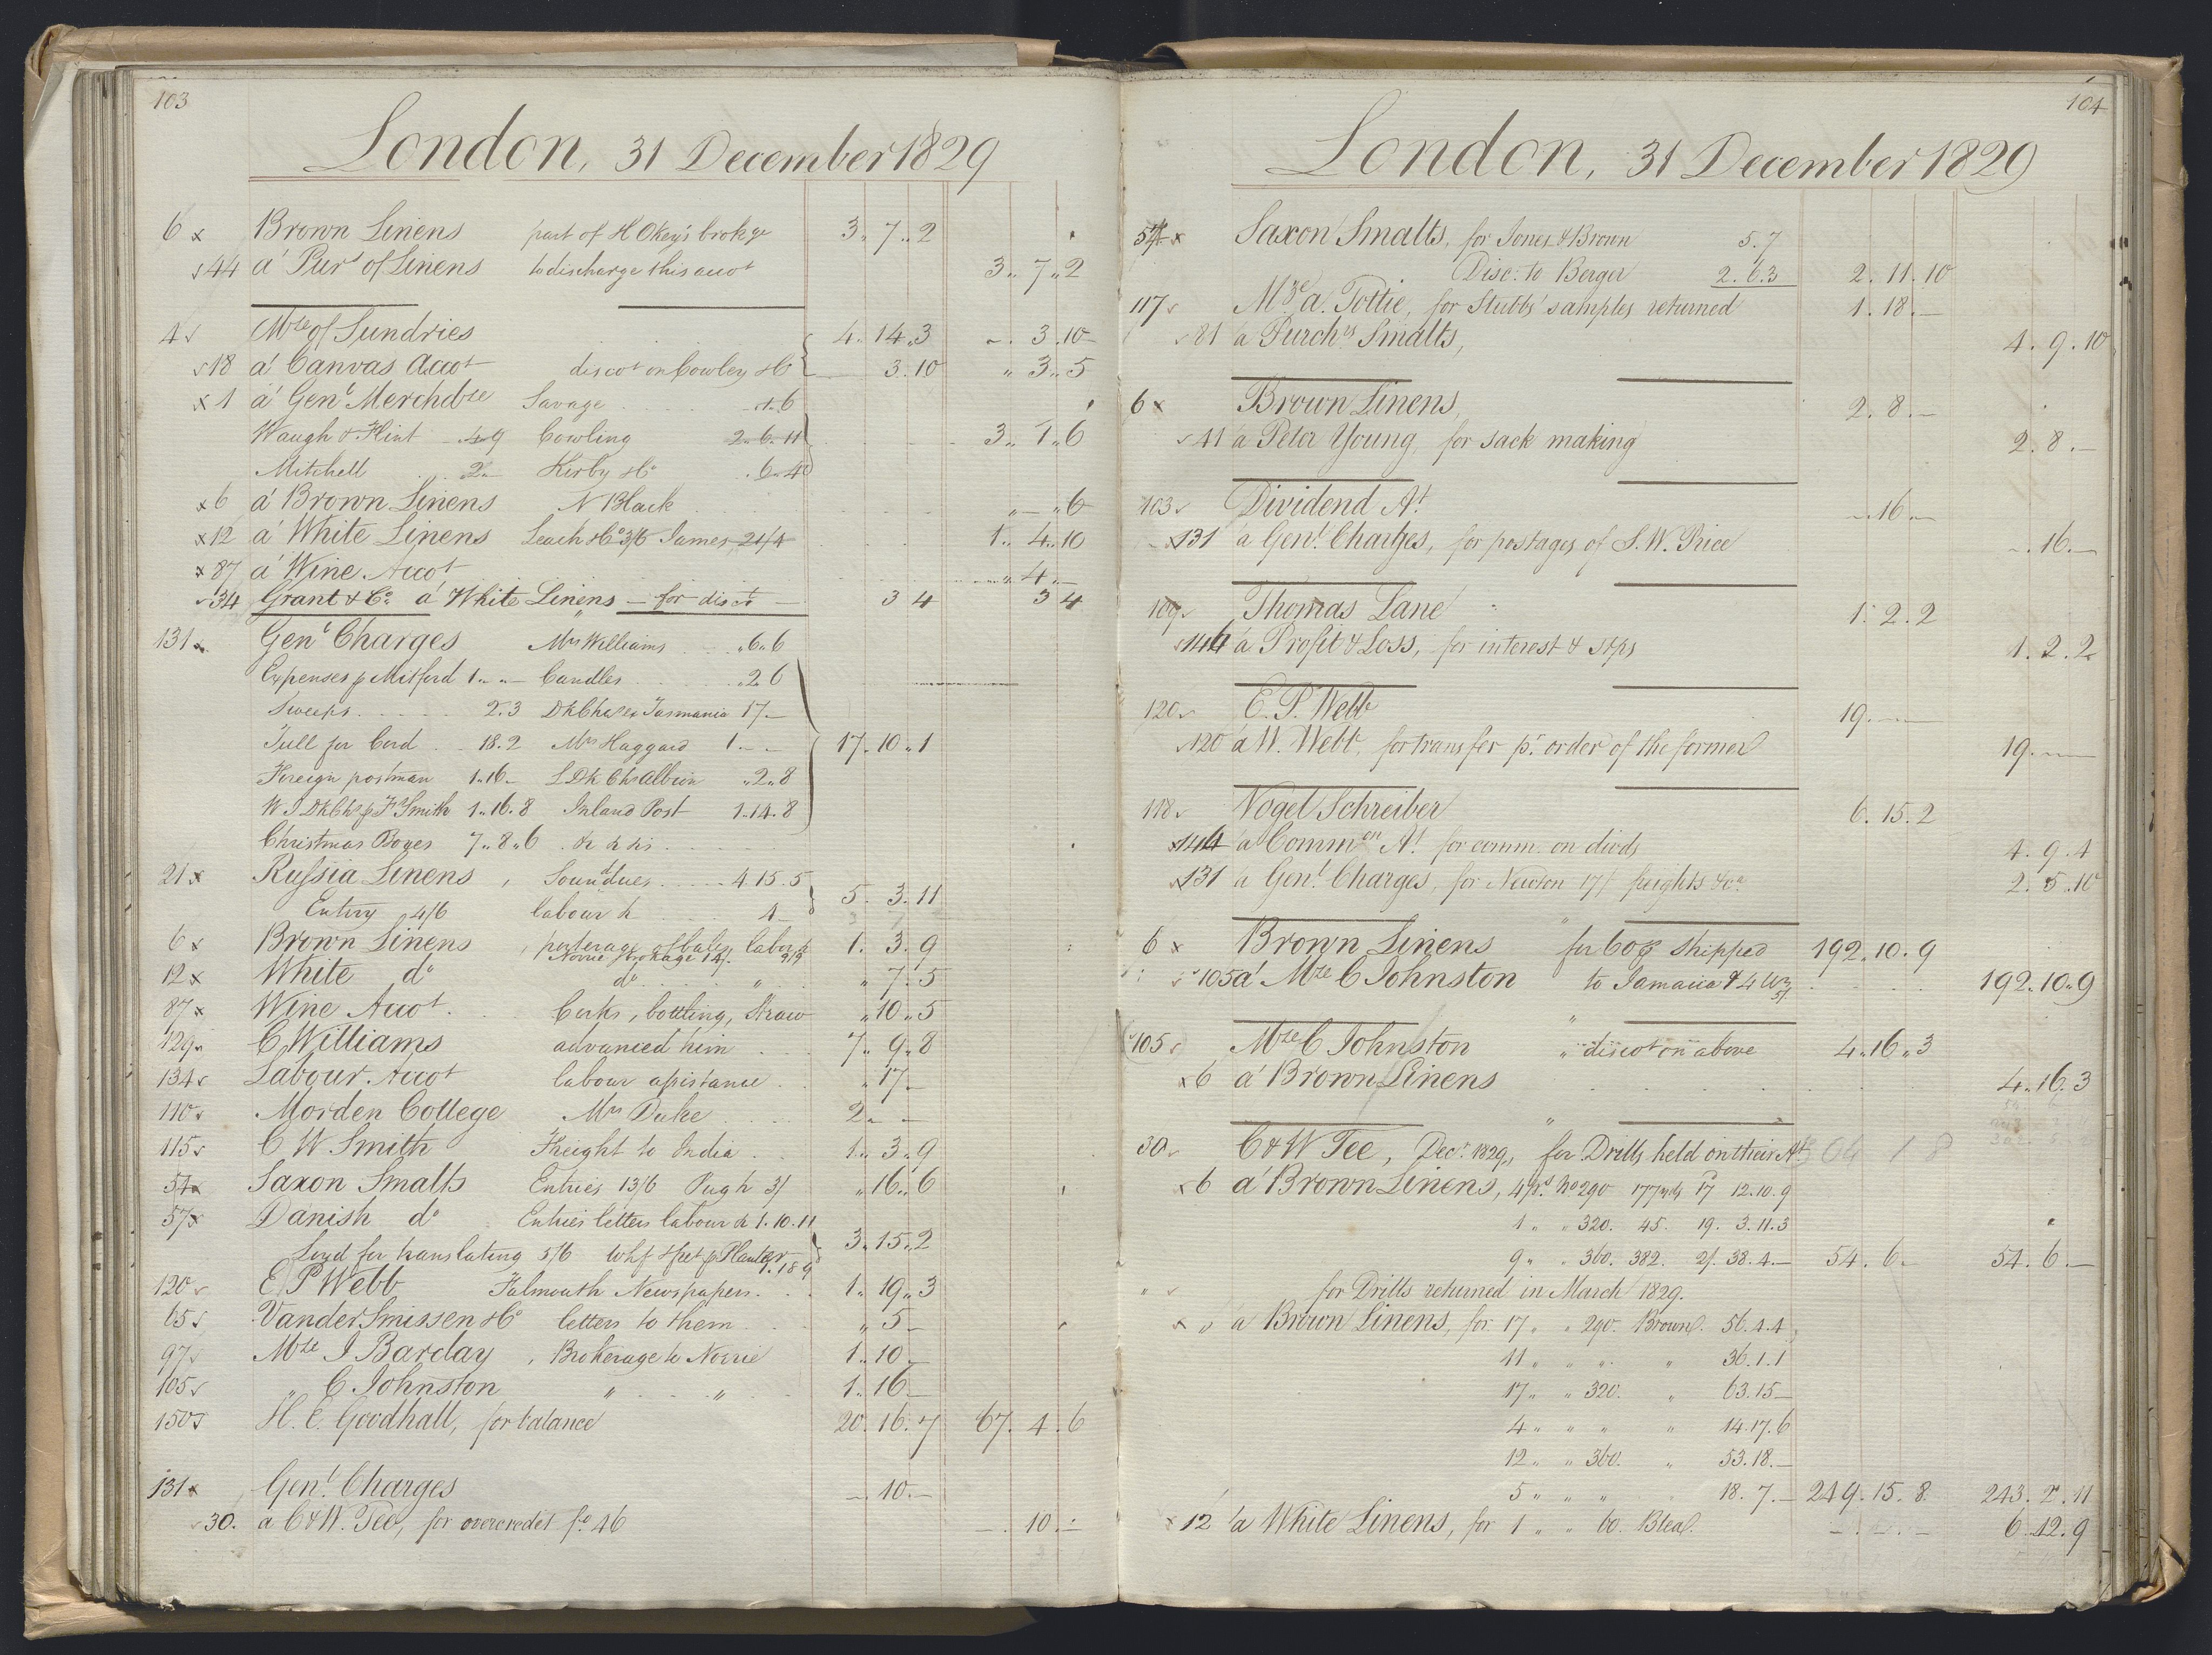 103
London, 31 December 1829
6 x Brown Linens part of H Okey's brokge 3.. 7.. 2
√44 a' Purs of Linens to discharge this accot 3.. 7.. 2
4√ Mze of Sundries 4.. 14.. 3 -. 3.10
√18 a' Canvas Accot discot on Cowley & Co 3.10 " 3.. 5
x 1 a' Genl Merchdze Savage -1.6
Waugh & Flint 4.9 Cowling 2..6.11 3.. 1.. 6
Mitchell 2.- Kirby & Co .6..4
x6 a' Brown Linens N Black "-"6
x12 a' White Linens Leach & Co 3/6 James 21/4 1.. 4..10
x 87 a' Wine Accot " 4.-
√34 Grant & Co a' White Linens - for disct 3 4 3 4
131 x Genl Charges Mrs Williams .6..6
Expenses p Mitford 1..-..- Candles .2.6
Sweeps 2.3 DkChas ex Tasmania 17-
Tull for Cord 18.2 Mrs Haggard 1.-.- 17.. 10.. 1
Foreign postman 1..16- LDk Chs Albion .2..8
W I DkChs p F Smith 1..16.8 Inland Post 1..14.8
Christmas Boxes 7..8..6
21 x Russia Linens, Sound dues 4.15.5
Entry 4/6 labour & 4- 5. 3.11
6 x Brown Linens, porterage of bales, labour 1. 3. 9
Norrie brokage 14/.
12 x White do do " 7.. 5
87 x Wine Accot. Corks, bottling, Straw " 10.. 5
129 C Williams advanced him 7.. 9.. 8
134√ Labour Accot labour assistance " 17-
110√ Morden College Mrs Duke 2.. - -
115√ C W Smith Freight to India 1.. 3.. 9
54x Saxon Smalts Entries 13/6 Pugh 3/ " 16.. 6
57x Danish do Entries letters labour & 1.10.11
Loyd for translating 5/6 whf &fret p Planter 1.18.9 3.. 15.. 2
120√ E P Webb Falmouth Newspapers 1.. 19.. 3
65√ Vander Smissen & Co letters to them " 5-
97√ Mze J Barclay, Brokerage to Norrie 1.. 10-
105√ " C Johnston " " 1.. 16-
150√ H. E. Goodhall, for balance 20. 16. 7 67. 4. 6
131x Genl Charges -. 10.-
√30. a C & W. Tee, for overcredit fo 46 -. 10.-
104
London, 31 December 1829
54 x Saxon Smalts, for Jones & Brown 5.7
Disc: to Berger 2.6.3 2.11.10
117√ Mze a. Tottie, for Stubbs' samples returned 1.18.-
√81 a Purchs Smalts, 4. 9.10
6 x Brown Linens, 2. 8.-
√41 a Peter Young, for sack making 2. 8.-
103√ Dividend At -.16.-
x131 a Genl Charges, for postages of S. W. Price -.16.-
109√ Thomas Lane 1. 2. 2
√144 a Profit & Loss, for interest & stps 1. 2. 2
120√ E. P. Webb 19.-.-
√120 a W. Webb, for transfer pr order of the former 19.-.-
118√ Vogel Schreiber 6. 15. 2
x144 a Common At for comm. on divds 4. 9. 4
x131 a Genl Charges, for Newton 17/ freights &ca 2. 5.10
6 x Brown Linens " for 60 ps shipped 192.. 10. 9
√105 a' Mze C Johnston to Jamaica 192..10..9
105√ Mze C Johnston " discot on above 4..16..3
x6 a' Brown Linens 4..16.3
30√ C & W Tee, Decr 1829, for Drills held on their At 304 1 8
x6 a' Brown Linens, 4 ps No 290 177 yds 17 12.10.9
1 " " 320. 45. 19. 3.11.3
9 " " 360. 382. 2/. 38.4.- 54. 6.- 54. 6.-
" √ for Drills returned in March 1829.
x " a Brown Linens, for 17 " " 290. Brown. 56.4.4
11 " " " " 36.1.1
17 " " 320. " 63.15-
4 " " " " 14.17.6
12 " " 360. " 53.18.-
5 " " " 18.7.- 249.15.8. 243. 2. 11
x 12 a White Linens, for 1 " " 60. Blea. 6.12.9